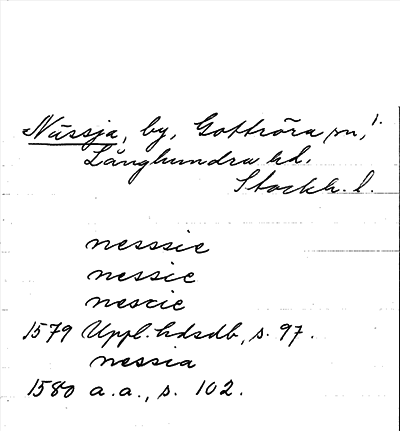 Nässja, by, Gottröra sn, 1.
Långhundra hd.
Stockh. l.
nesssie
nessie
nescie
1579 Uppl. hdsdb, s. 97.
nessia
1580 a.a., s. 102.